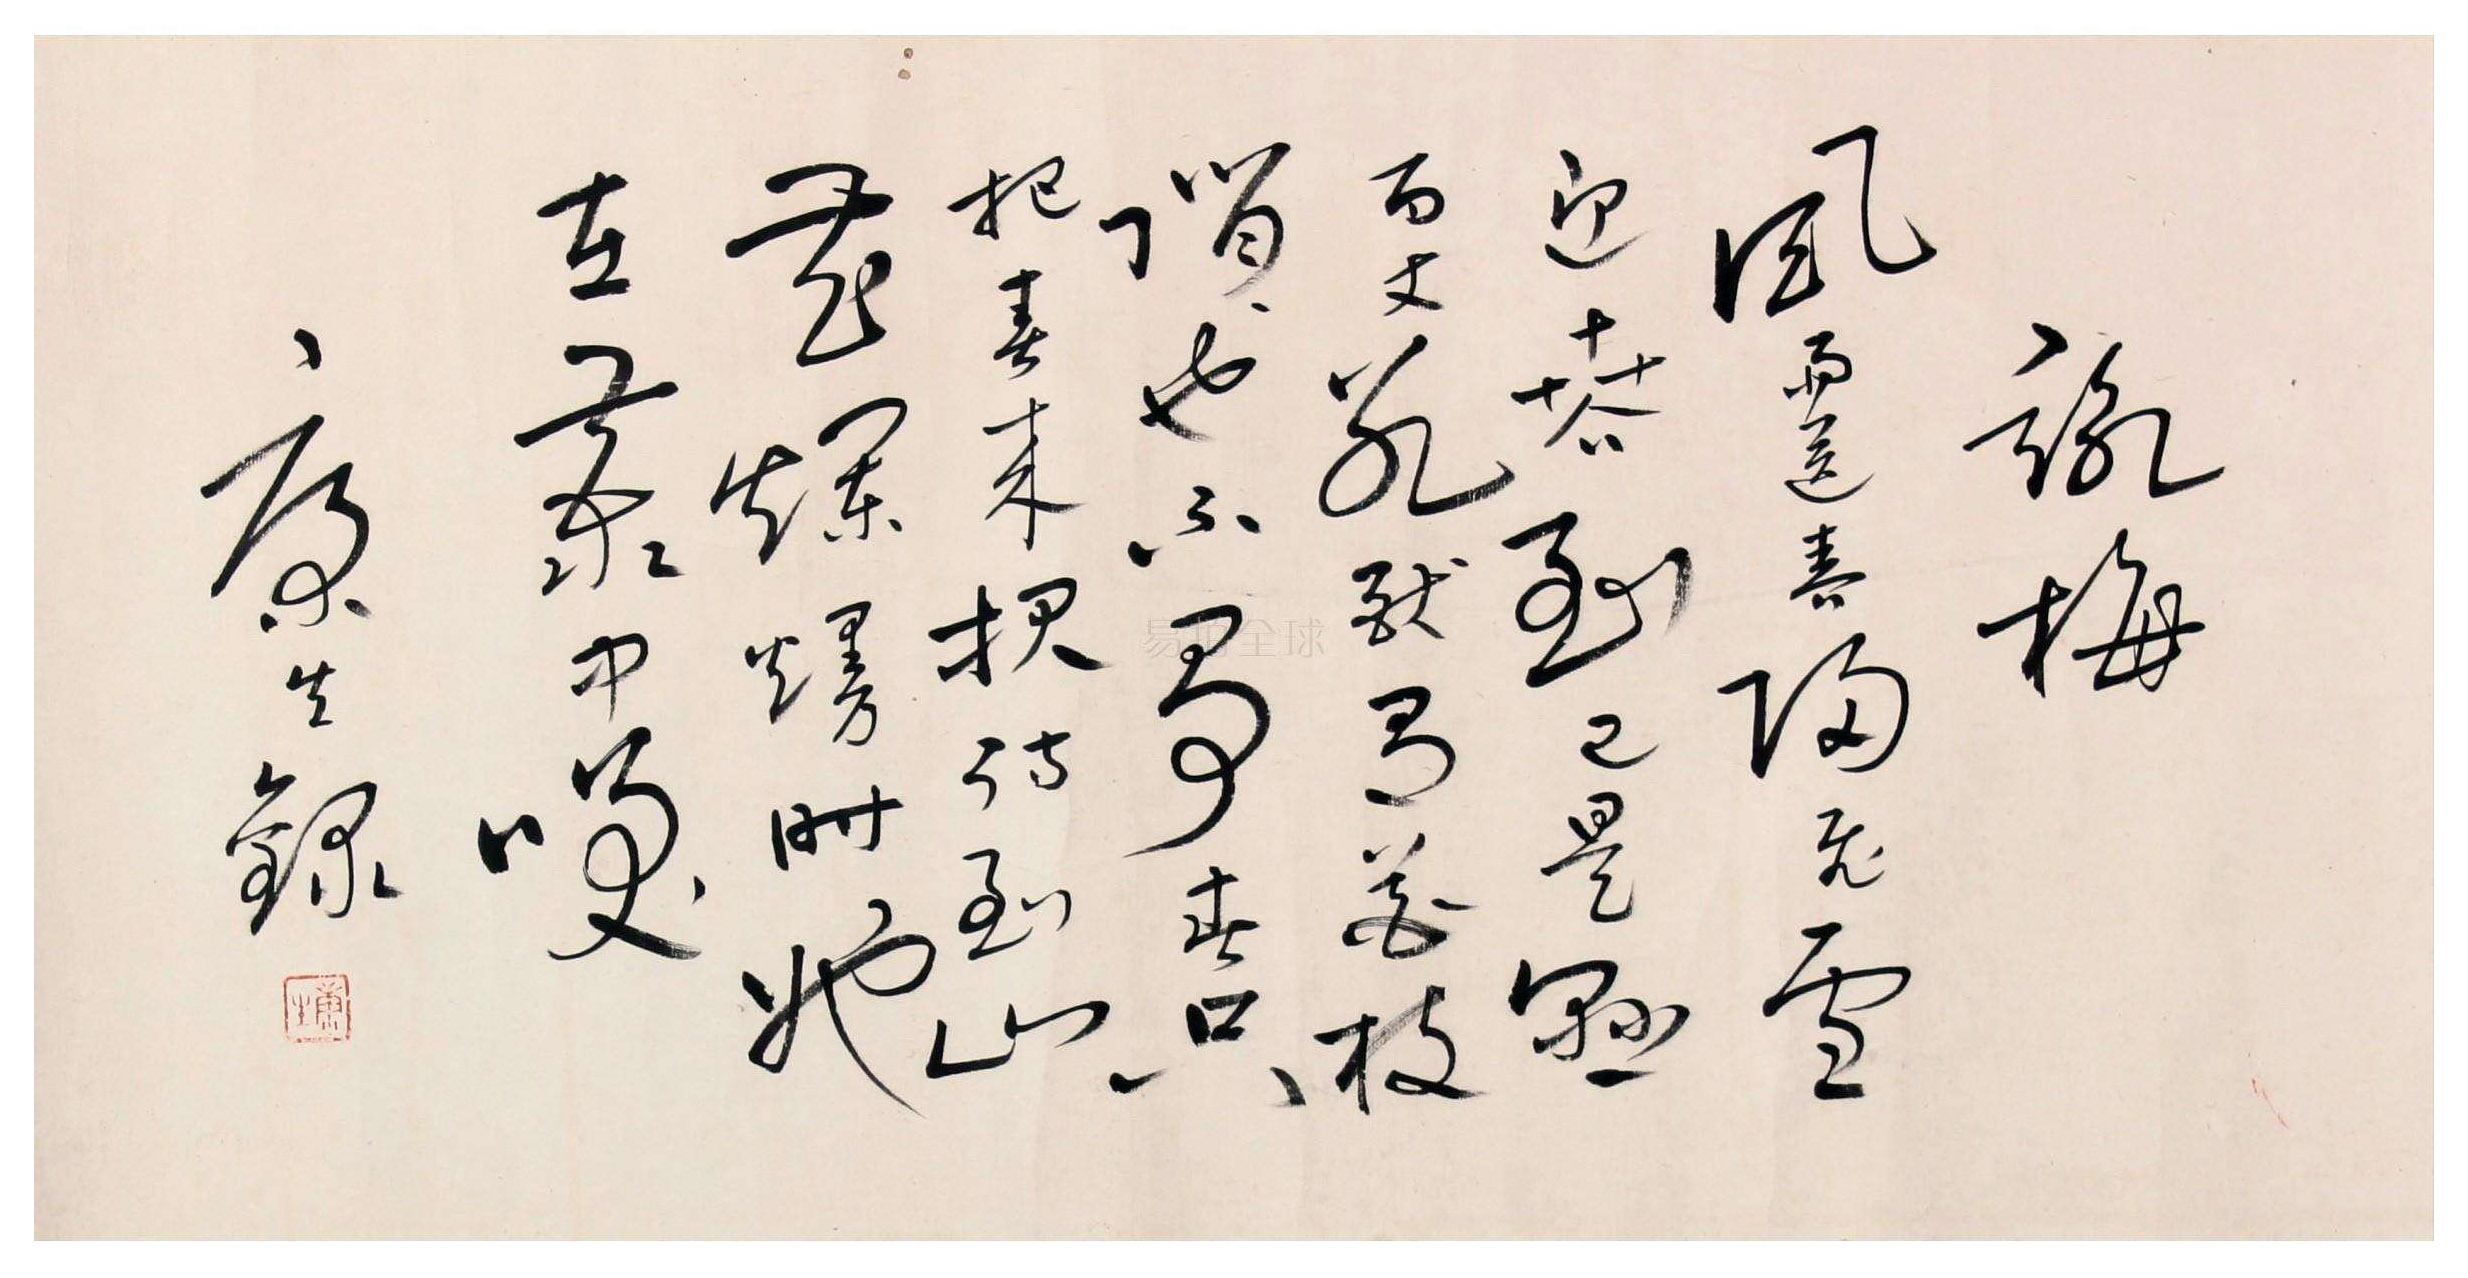 詠梅
風雨送春歸飛雪
迎春到已是懸
百丈冰猶有花枝
俏〻也不爭春只
把春來報待到山
花爛熳時她
在叢中笑
康生錄
康生
易拍全球